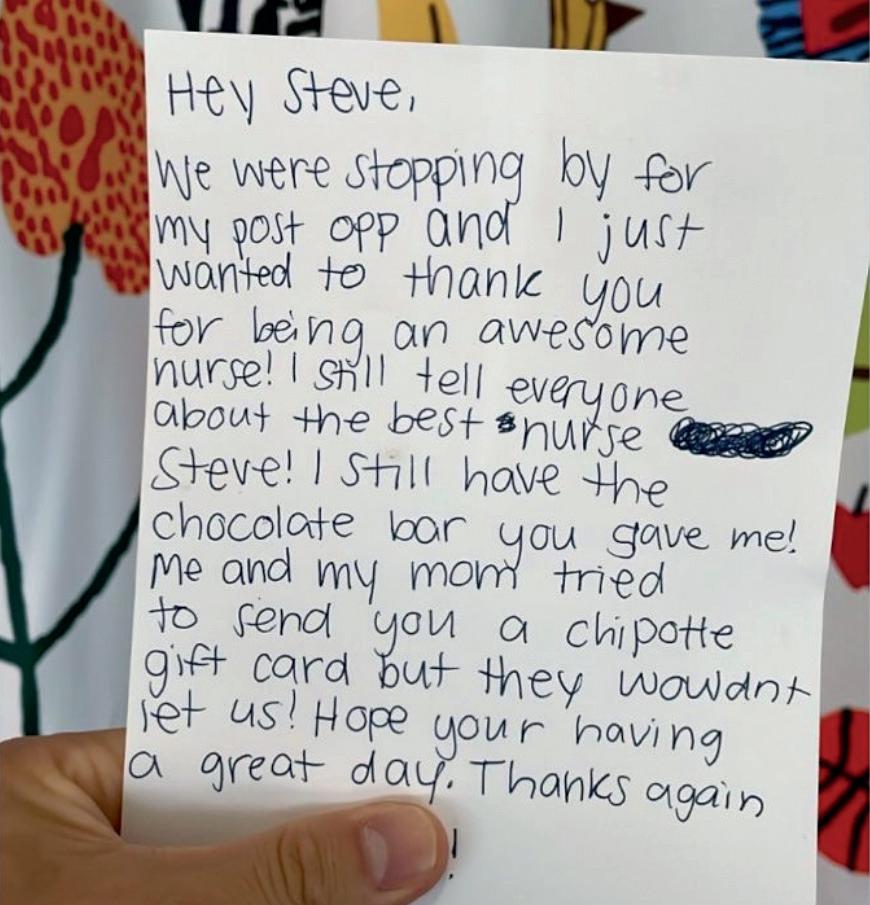 Hey Steve,
We were stopping by for
my post opp and I just
wanted to thank you
for being an awesome
nurse! I still tell everyone
about the best nurse
Steve! I still have the
chocolate bar you gave me!
Me and my mom tried
to send you a chipotte
gift card but they wouldnt
let us! Hope your having
a great day. Thanks again
!